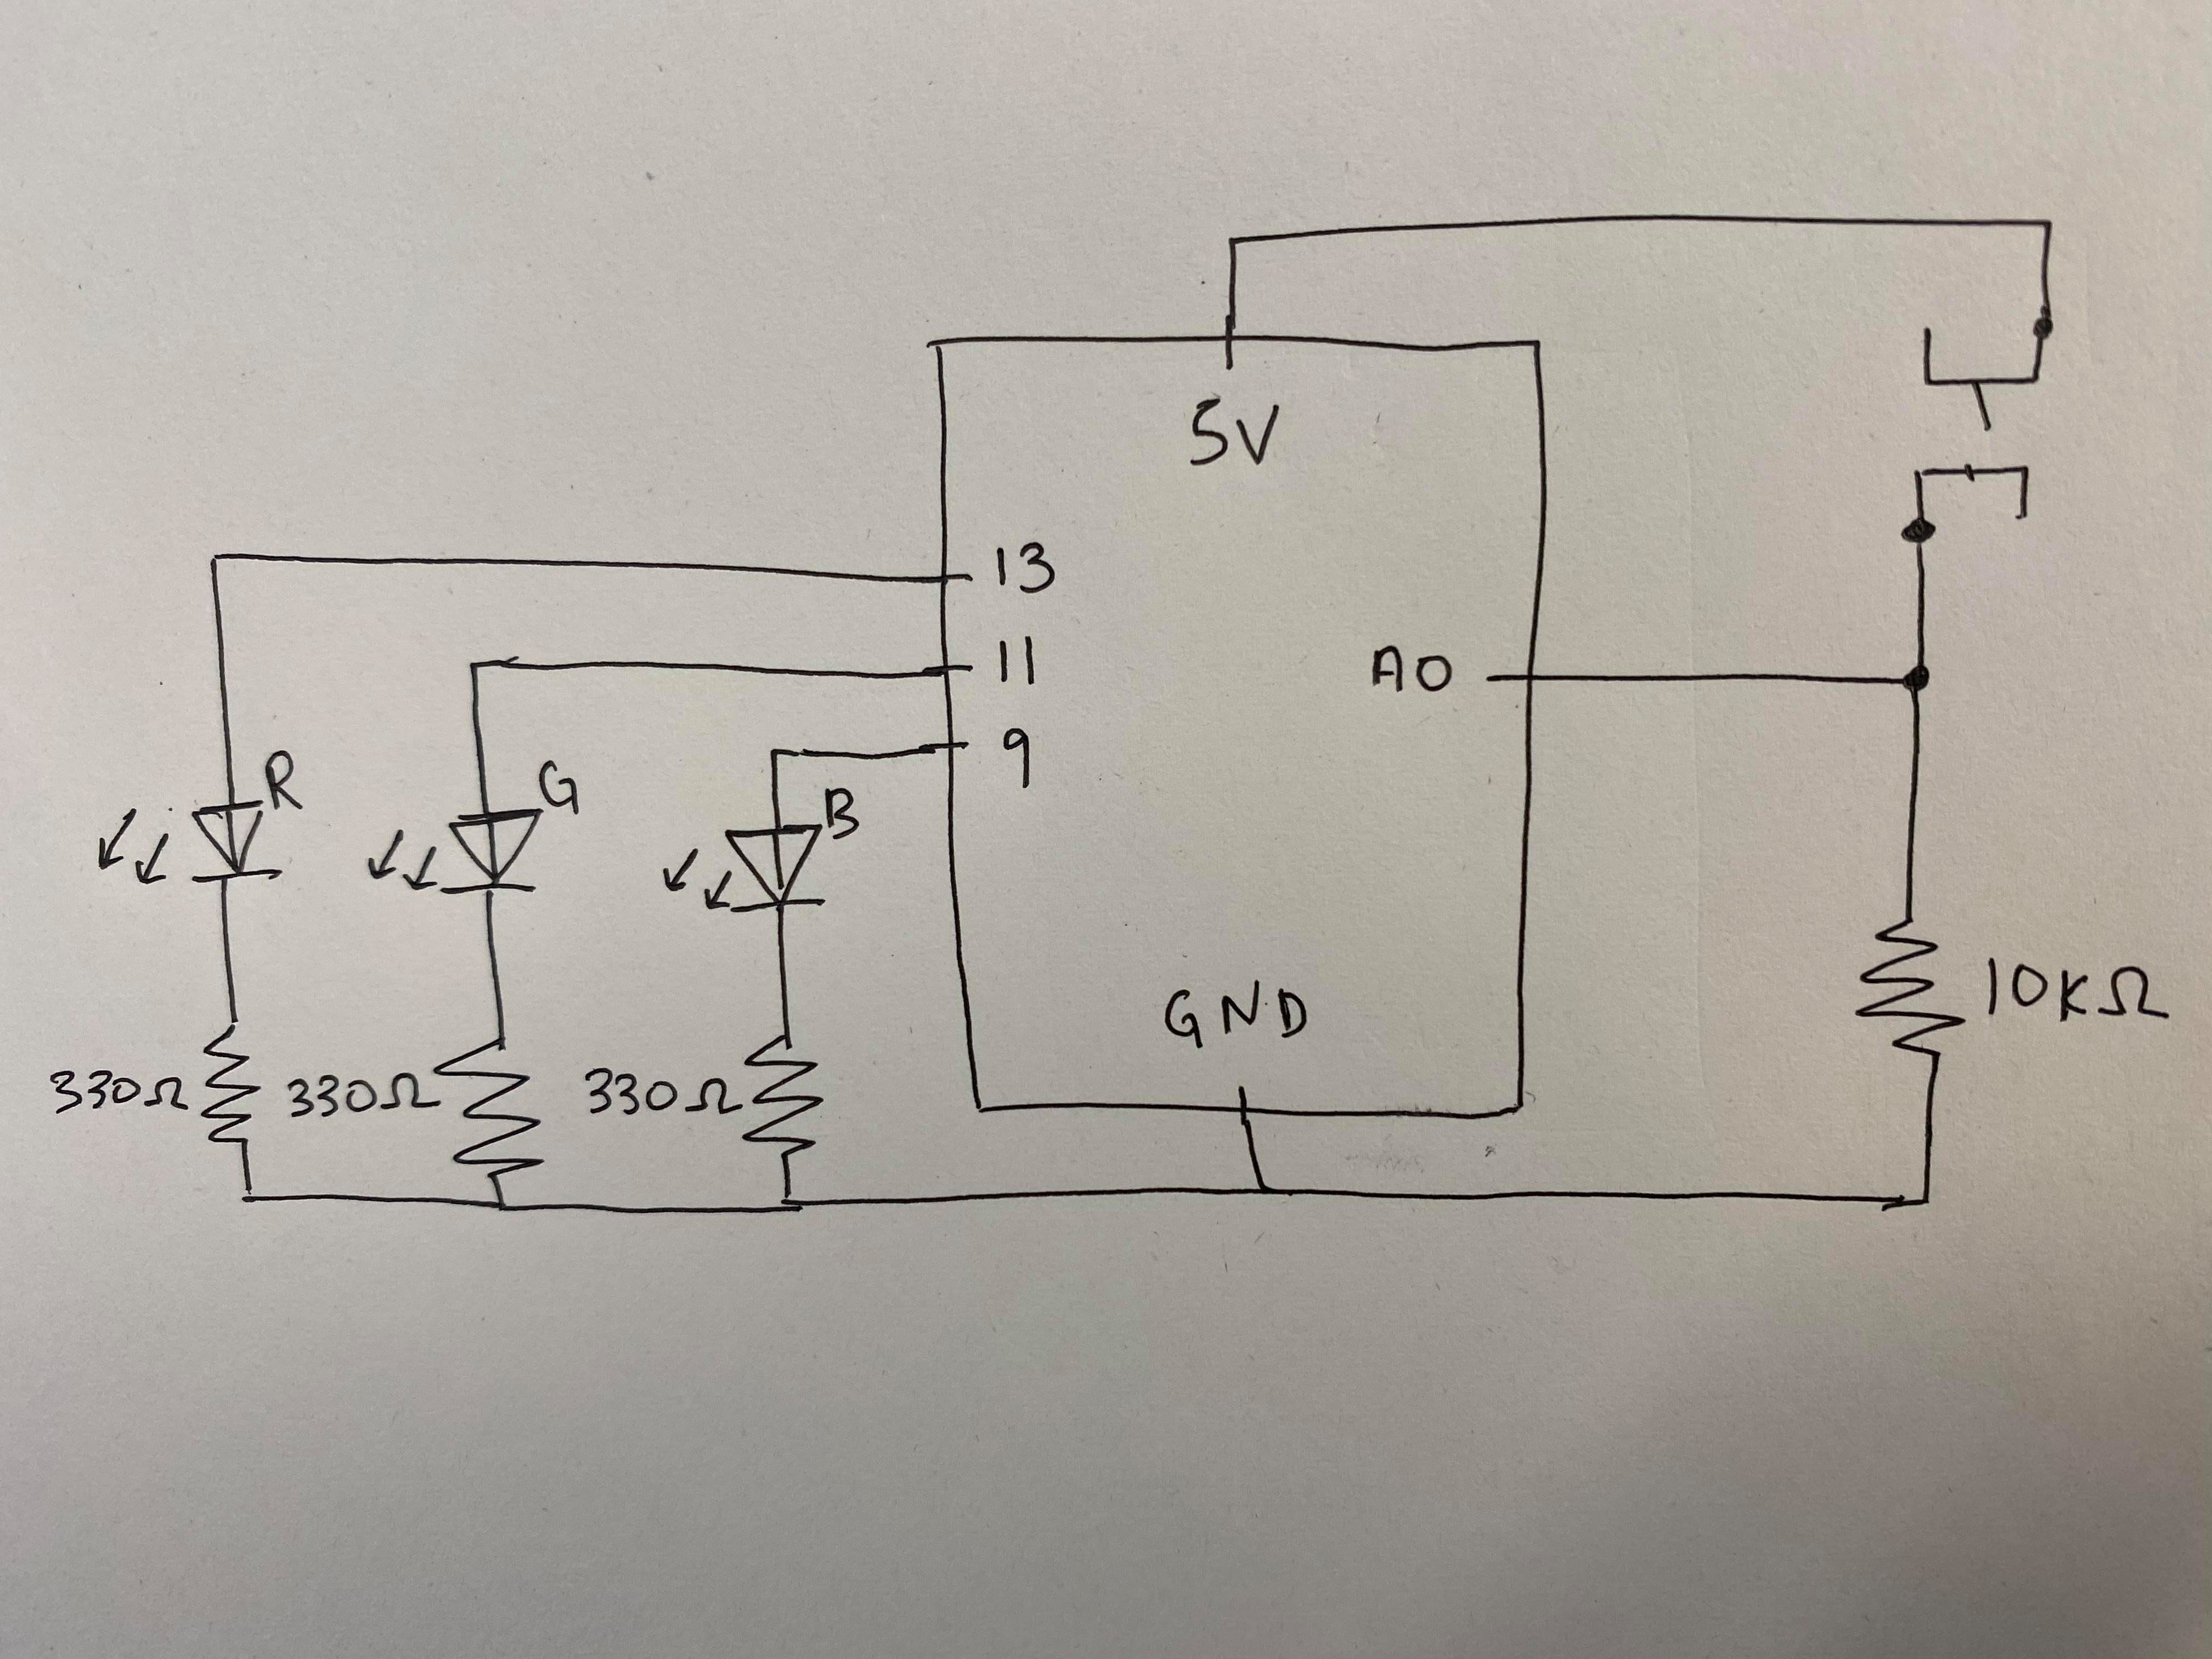 5V
13
11
A0
9
R
G
B
GND
10KΩ
330Ω
330Ω
330Ω